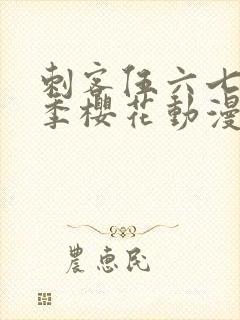 刺客伍六七
季櫻花動漫
農惠民